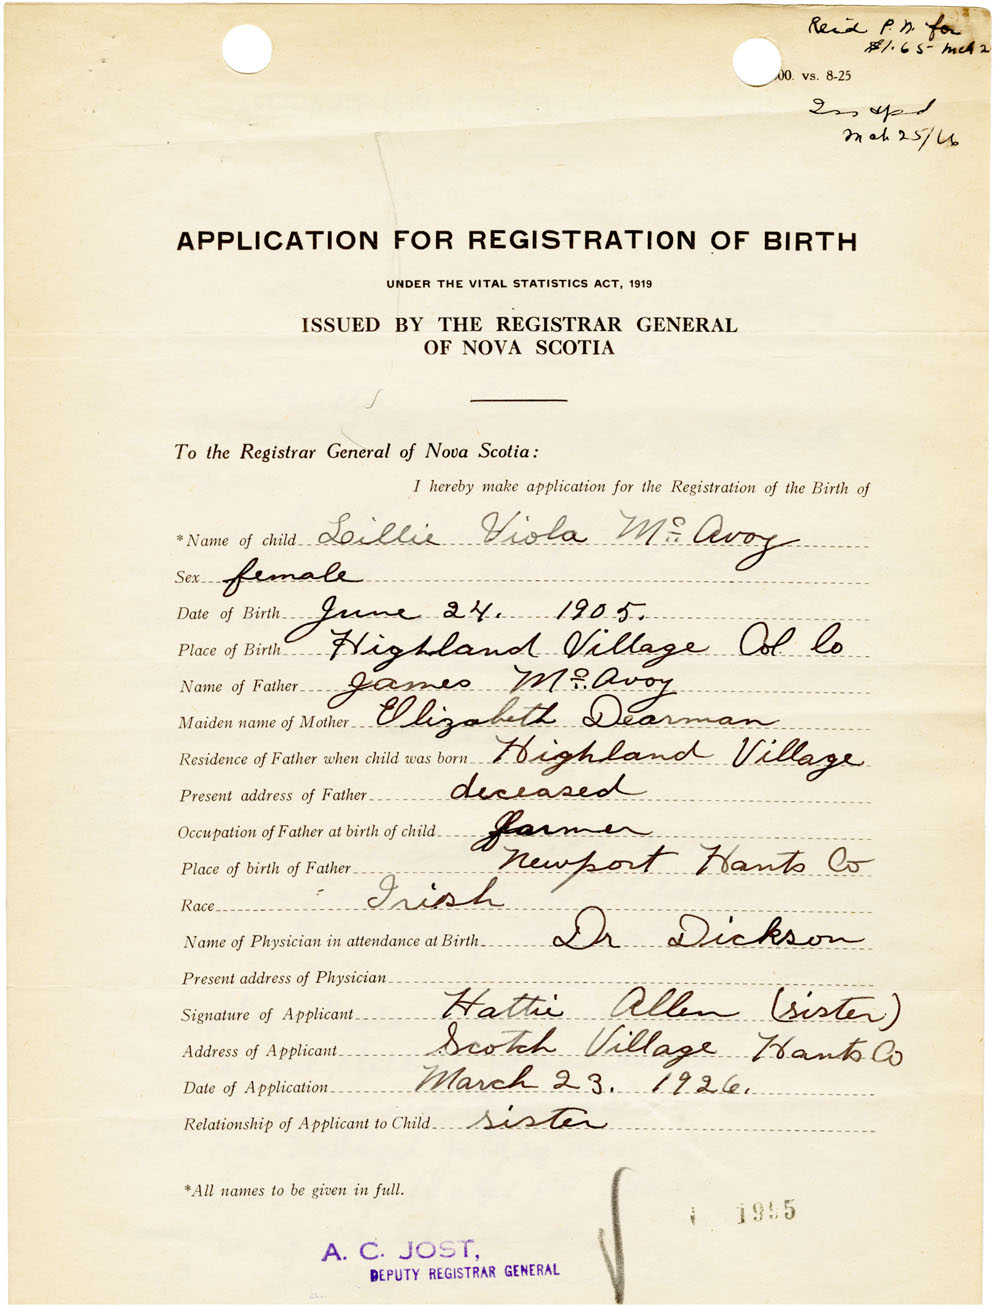 Recd P.N. for
$1.65 Mch 2
00. vs. 8-25
Mch 25/26
APPLICATION FOR REGISTRATION OF BIRTH
UNDER THE VITAL STATISTICS ACT, 1919
ISSUED BY THE REGISTRAR GENERAL
OF NOVA SCOTIA
To the Registrar General of Nova Scotia:
I hereby make application for the Registration of the Birth of
*Name of child Lillie Viola McAvoy
Sex female
Date of Birth June 24. 1905.
Place of Birth Highland Village Col Co
Name of Father James McAvoy
Maiden name of Mother Elizabeth Dearman
Residence of Father when child was born Highland Village
Present address of Father deceased
Occupation of Father at birth of child farmer
Place of birth of Father Newport Hants Co
Race Irish
Name of Physician in attendance at Birth Dr Dickson
Present address of Physician
Signature of Applicant Hattie Allen (sister)
Address of Applicant Scotch Village Hants Co
Date of Application March 23. 1926.
Relationship of Applicant to Child sister
*All names to be given in full.
1995
A. C. JOST,
DEPUTY REGISTRAR GENERAL